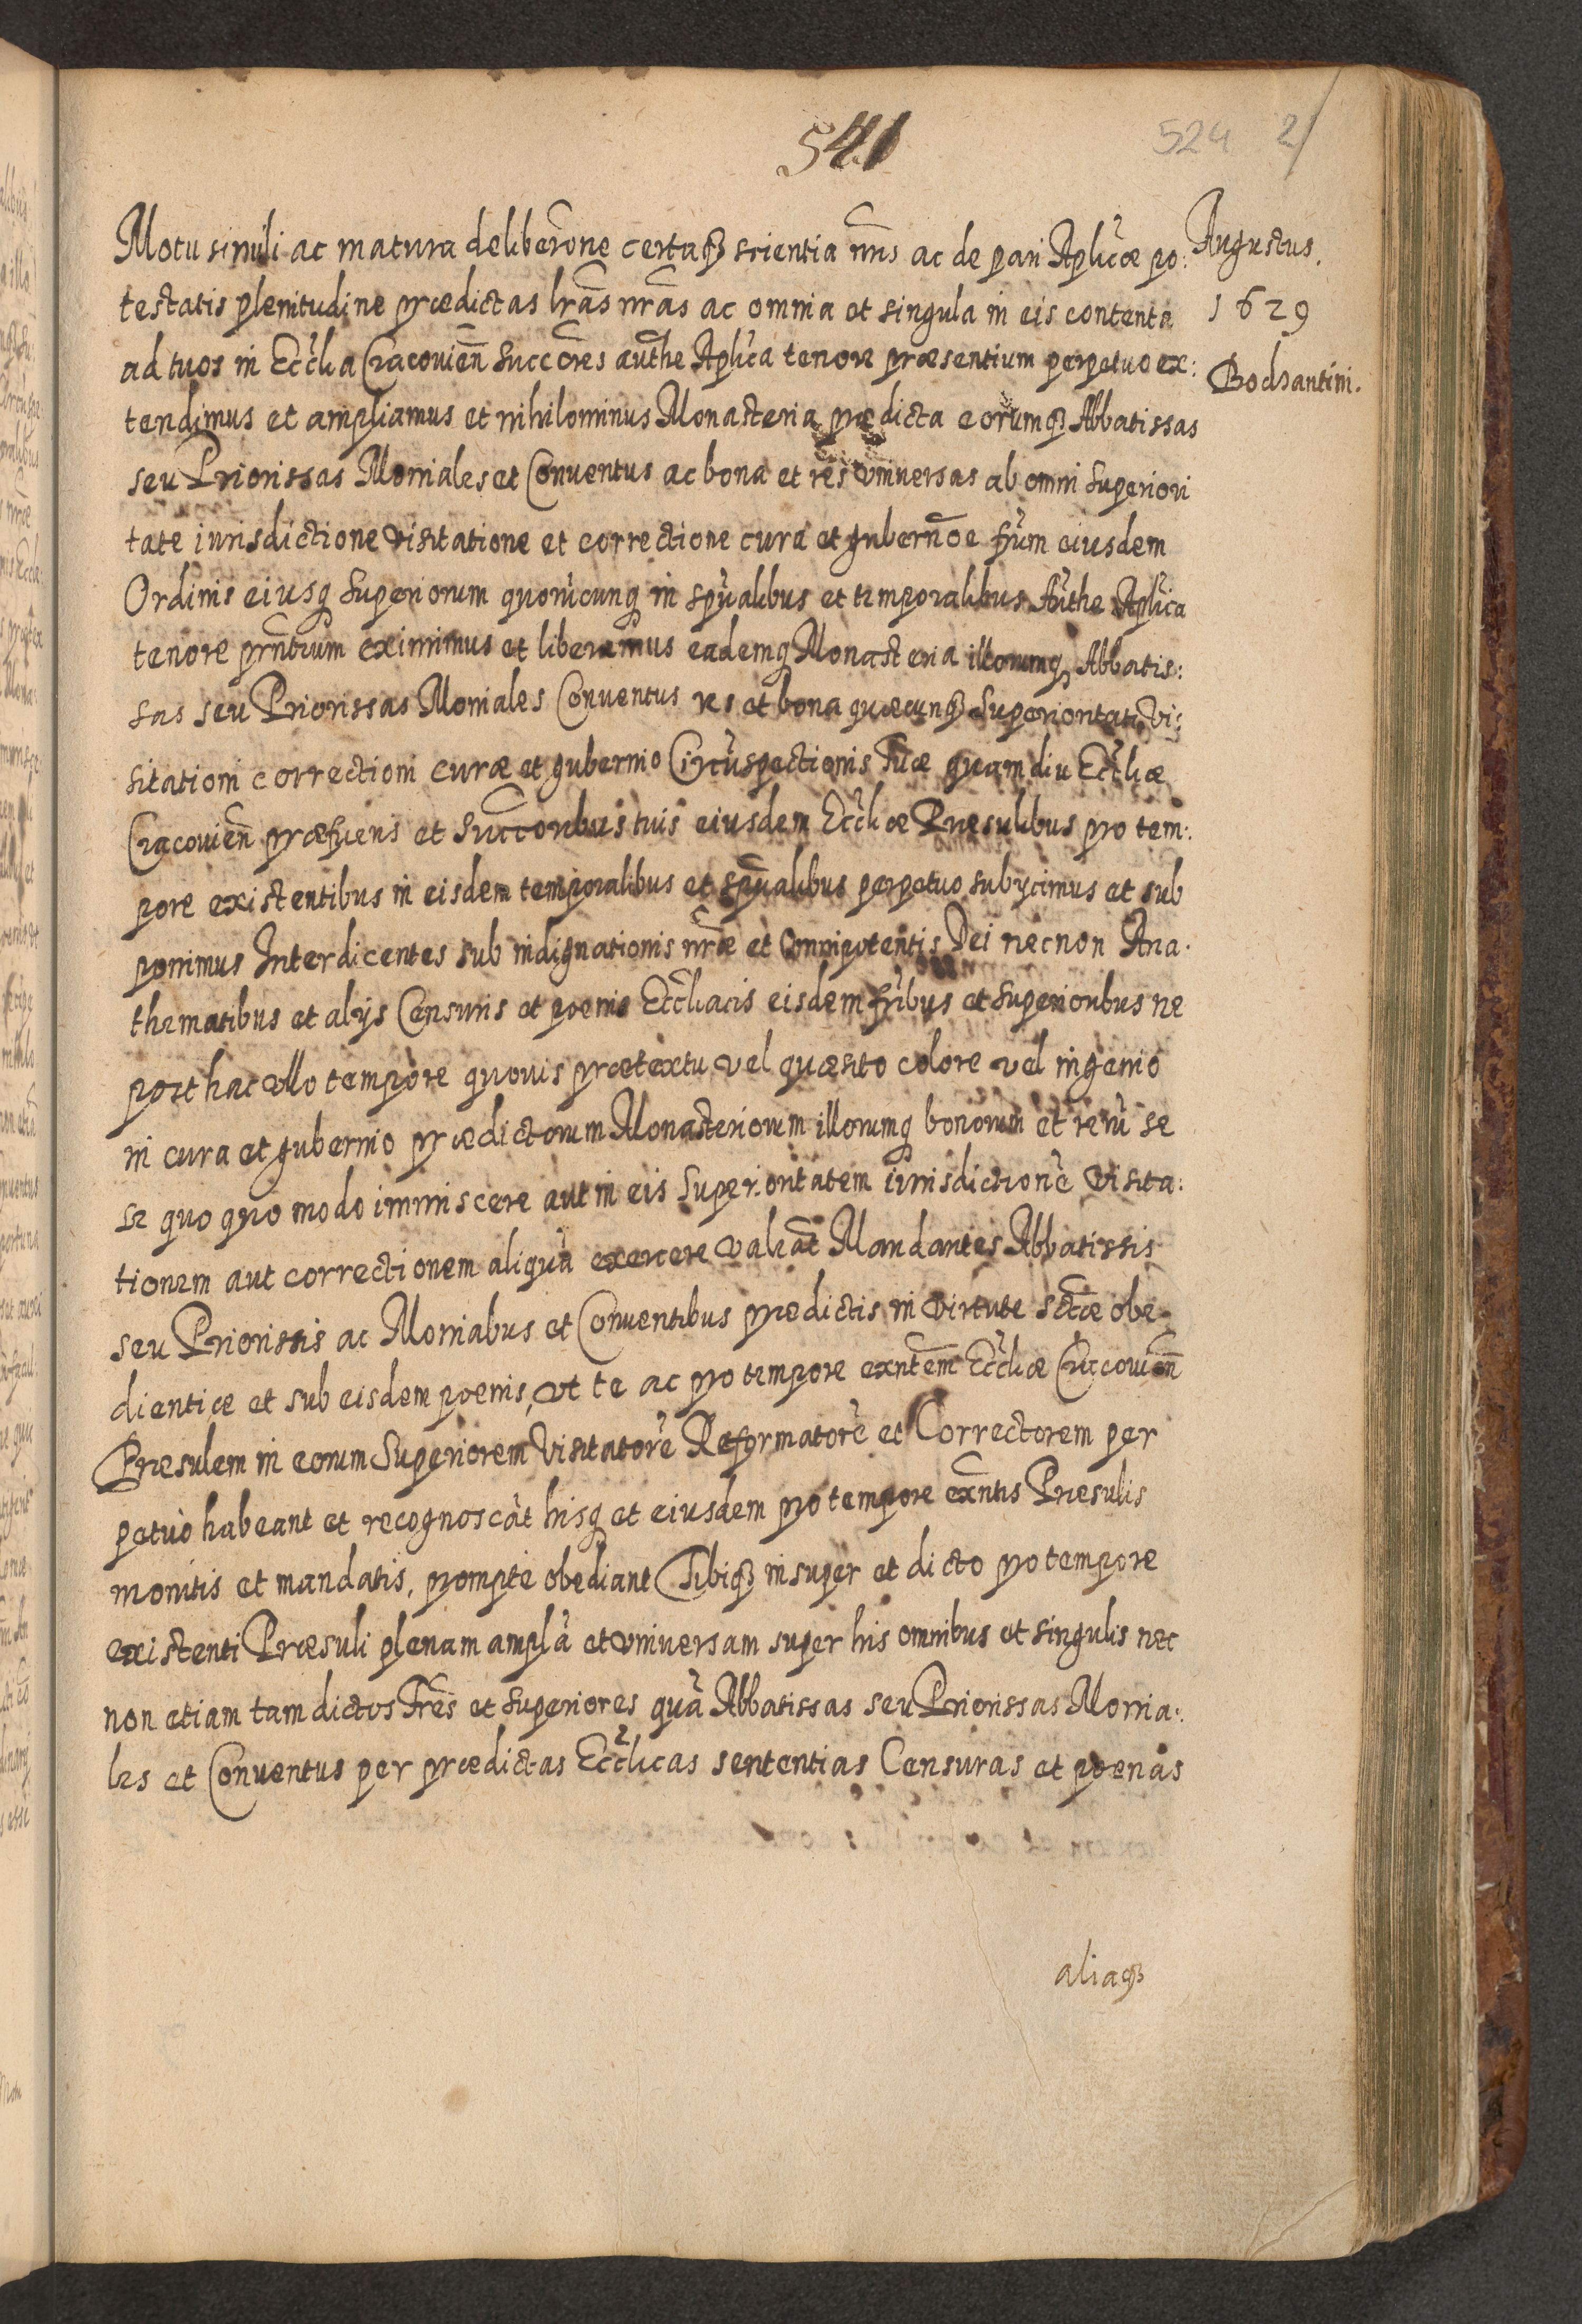 541
524 21
Motu simili ac matura deliberõne certaq scientia nr̃is ac de pari Aplicæ po:
testatis plenitudine prædictas lr̃as nr̃as ac omnia et singula in eis contenta
ad tuos in Ecclia Cracovieñ Succõres auth̃e Aplica tenore præsentium perpetuo ex:
tendimus et ampliamus et nihilominus Monasteria prædicta eorumq Abbatissas
seu Priorissas Moniales et Conventus ac bona et res vniversas ab omni Superiori
tate iurisdictione visitatione et correctione cura et gubern̄oe fr̃um eiusdem
Ordinis eiusq Superiorum quorũcunq in spũalibus et temporalibus Auth̃e Aplica
tenore prñtium eximimus et liberamus eademq Monasteria illorumq Abbatis:
sas seu Priorissas Moniales Conventus res et bona quæcunq Superioritati Vi:
sitationi correctioni curæ et gubernio Circũspectionis Tuæ quamdiu Ecclicæ
Cracovieñ præfueris et Succoribus tuis eiusdem Eccliæ Præsulibus pro tem:
pore existentibus in eisdem temporalibus et spũalibus perpetuo subycimus et sub
ponimus Interdicentes sub indignationis nr̃æ et Omnipotentis Dei necnon Ana:
thematibus et alÿs Censuris et poenis Eccliacis eisdem fr̃ibus et Superioribus ne
post hac vllo tempore quovis prætextu vel quæsito colore vel ingenio
in cura et gubernio prædictorum Monasteriorum illorumq bonorum et rerũ se
se quo quo modo immiscere aut in eis Superioritatem iurisdictionẽ Visita:
tionem aut correctionem aliquã exercere valeãt Mandantes Abbatissis
seu Priorissis ac Moniabus et Conventibus prædictis in virtute sctæ obe:
dientiæ et sub eisdem poenis, vt te ac pro tempore exñtem Eccliæ Cracovieñ
Præsulem in eorum Superiorem Visitatorẽ Reformatorẽ et Correctorem per
petuo habeant et recognoscãt hisq et eiusdem pro tempore exñtis Præsulis
monitis et mandatis, prompte obediant Tibiq insuper et dicto pro tempore
existenti Præsuli plenam amplã et vniversam super his omnibus et singulis nec
non etiam tam dictos Frẽs et Superiores quã Abbatissas seu Priorissas Monia:
les et Conventus per prædictas Ecclicas sententias Censuras et poenas
aliaq
Augustus.
1629
Bodzantini.